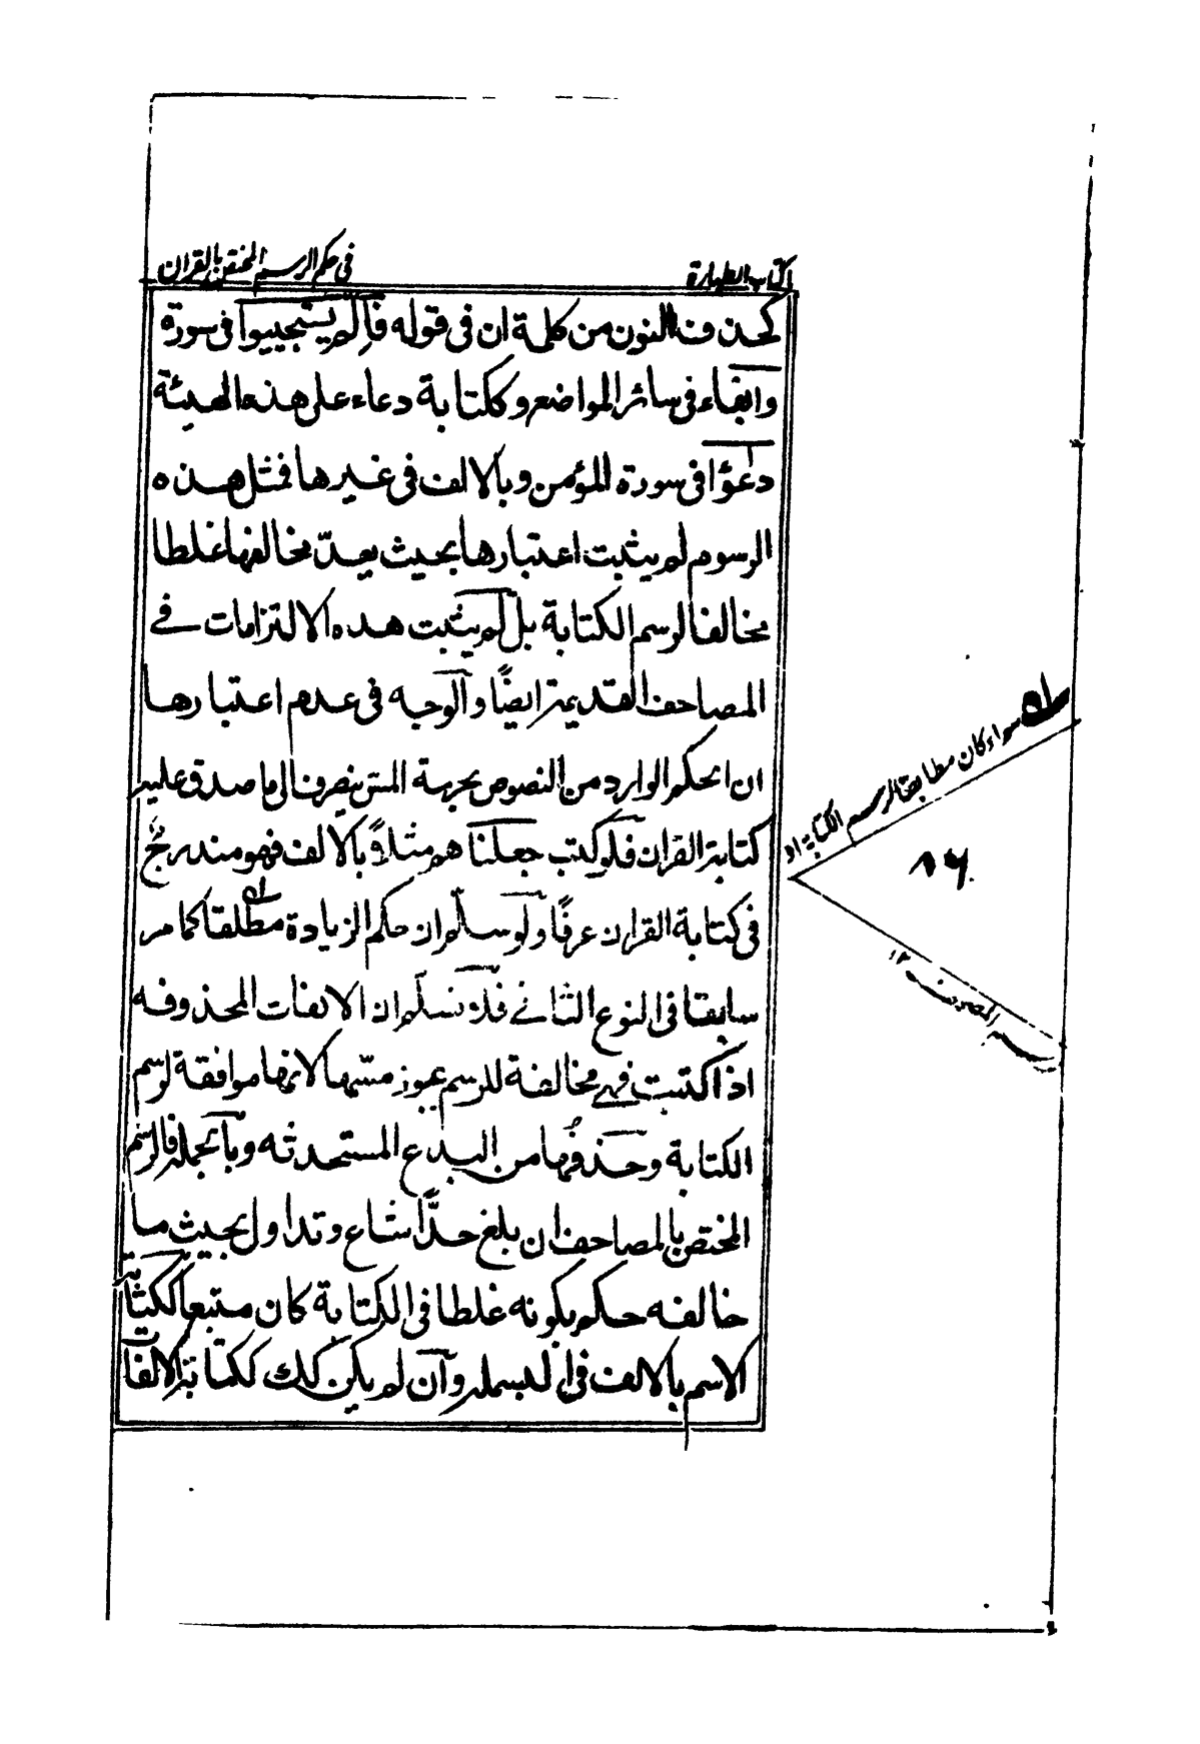 كتاب الطهارة
في حكم الرسم المختص بالقران
كحذف النون من كلمة ان في قوله فالم يستجيبوا في سورة
وابقاء في سائر المواضع وككتابة دعاء على هذه الهيئة
دعؤا في سورة المؤمن وبالالف في غيرها فمثل هذه
الرسوم لم يثبت اعتبارها بحيث يعدّ مخالفها غلطا
مخالفا لرسم الكتابة بل لم يثبت هذه الالتزامات في
المصاحف القديمة ايضًا والوجه في عدم اعتبارها
ان الحكم الوارد من النصوص بحرمة المس ينصرف الى ما صدق عليه
كتابة القران فلو كتب جعلنا هم مثلاً بالالف فهو مندرج
في كتابة القران عرفًا ولو سلّم ان حكم الزيادة مطلقا كما مر
سابقا في النوع الثاني فلا نسلّم ان الالفات المحذوفه
اذا كتبت فهي مخالفة للرسم يجوز مسّها لانها موافقة لرسم
الكتابة وحذفها من البدع المستحدثه وبالجمله فالرسم
المختص بالمصاحف ان بلغ حدًّا شاع وتداول بحيث ما
خالفه حكم بكونه غلطا في الكتابة كان متبعا ككتابة
الاسم بالالف في البسمله وان لم يكن كك ككتابة الالفات
سواء كان مطابقا لرسم الكتابة او
لرسم المصحف ١٢
١٦